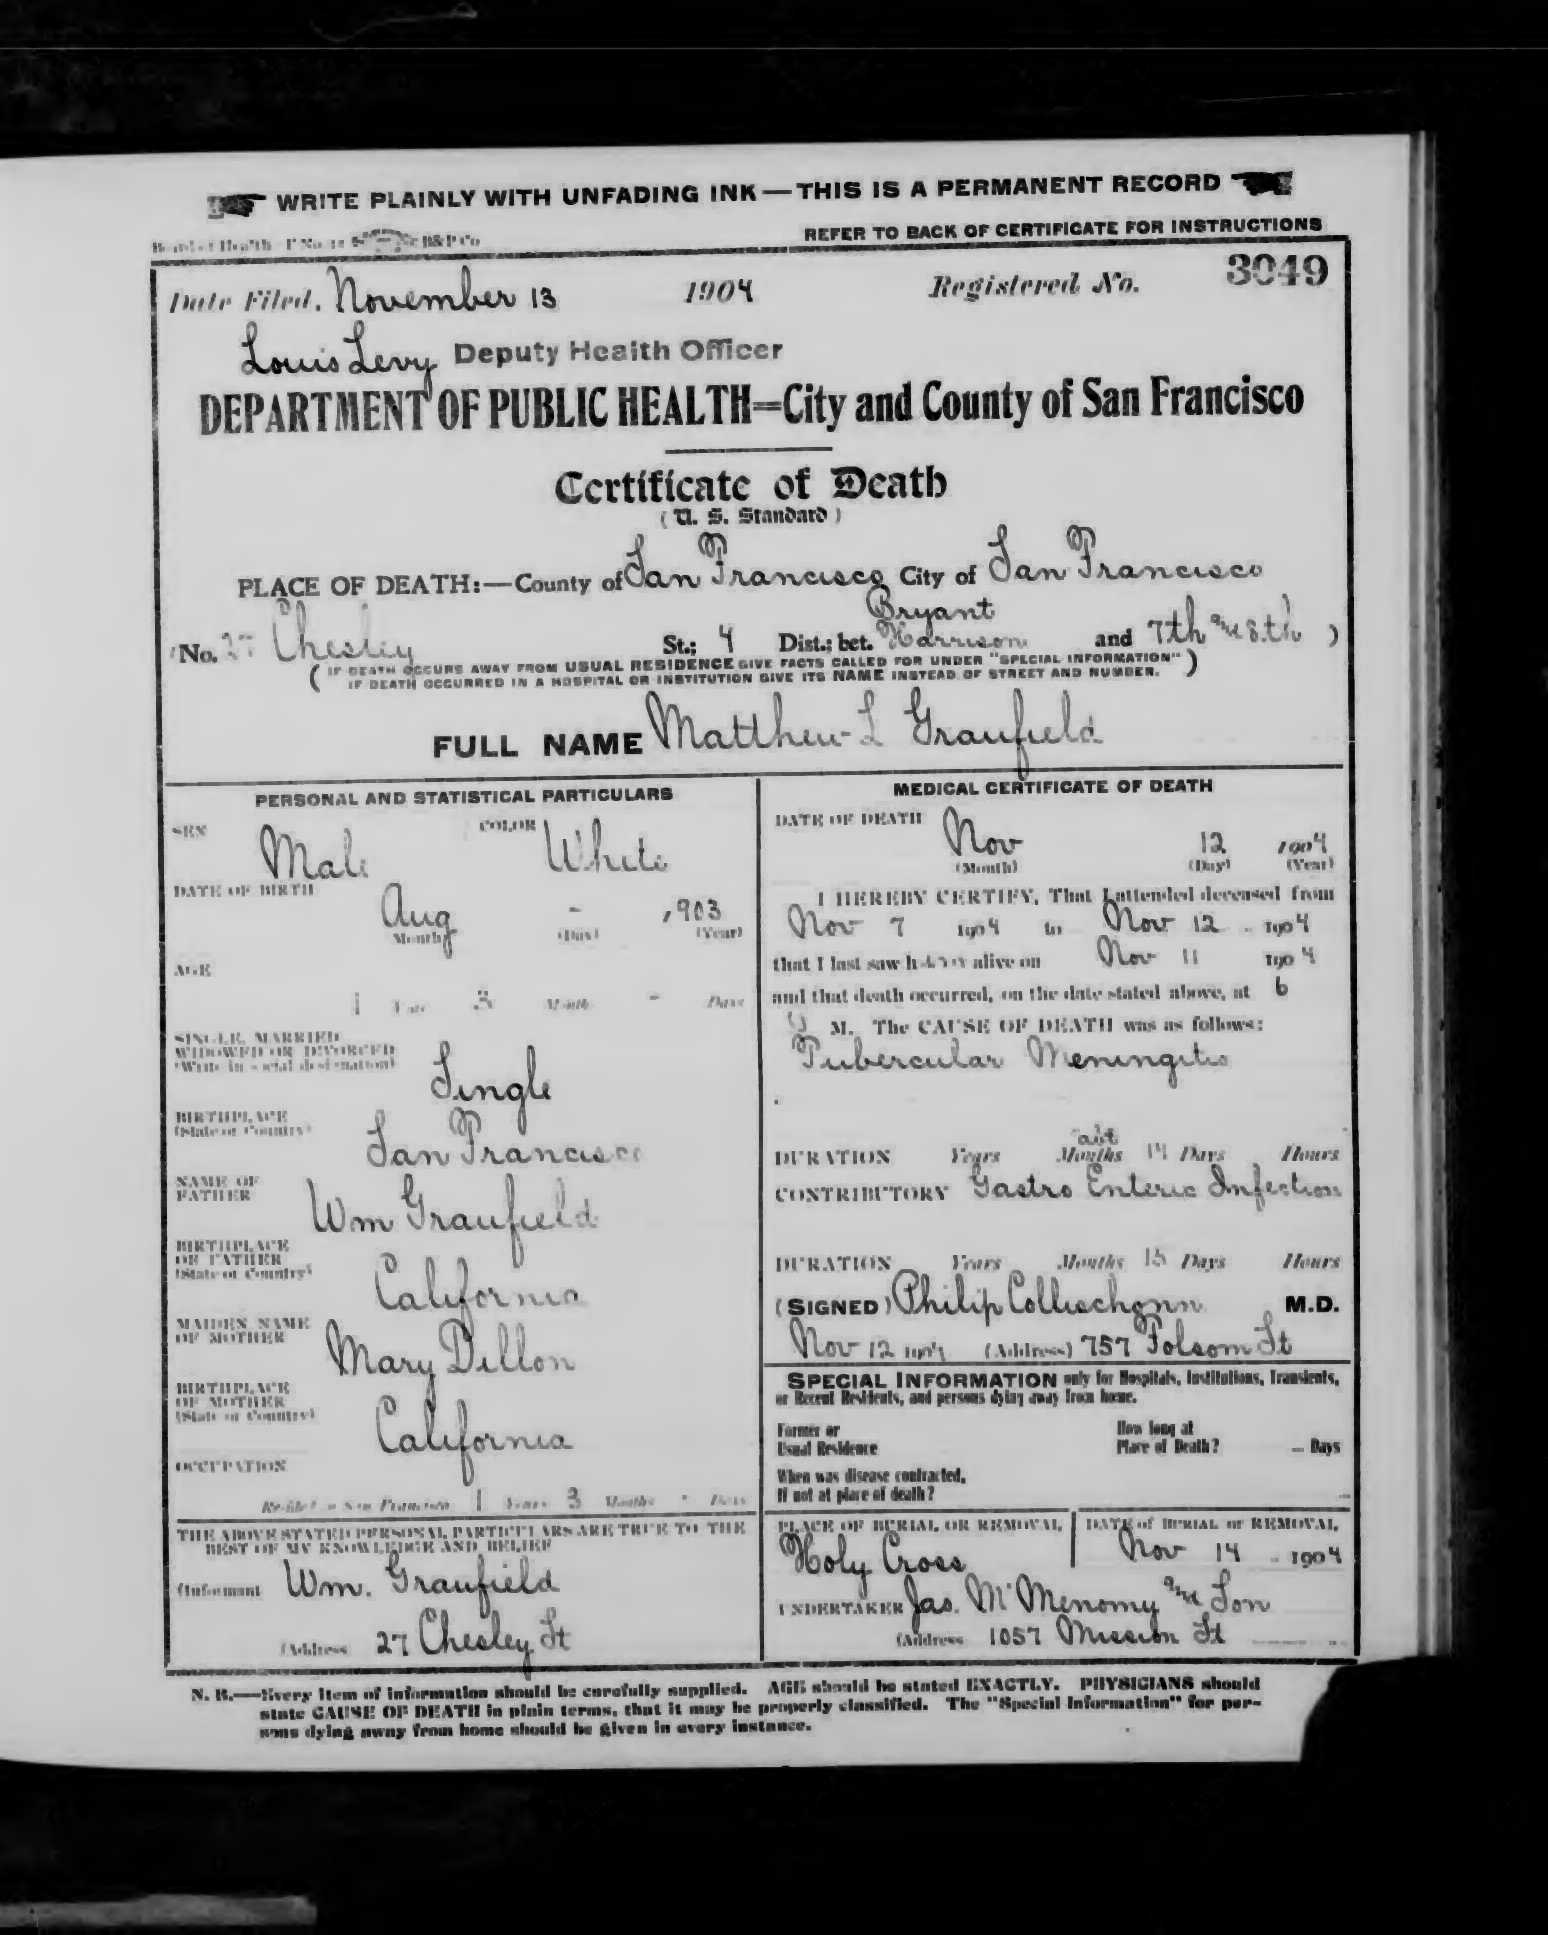 WRITE PLAINLY WITH UNFADING INK — THIS IS A PERMANENT RECORD
REFER TO BACK OF CERTIFICATE FOR INSTRUCTIONS
Date Filed, November 13 1904 Registered No. 3049
Louis Levy Deputy Health Officer
DEPARTMENT OF PUBLIC HEALTH=City and County of San Francisco
Certificate of Death
(U. S. Standard)
PLACE OF DEATH:—County of San Francisco City of San Francisco
Bryant
(No. 27 Chesley St.; 4 Dist.; bet. Harrison and 7th and 8th)
(IF DEATH OCCURS AWAY FROM USUAL RESIDENCE GIVE FACTS CALLED FOR UNDER "SPECIAL INFORMATION")
(IF DEATH OCCURRED IN A HOSPITAL OR INSTITUTION GIVE ITS NAME INSTEAD OF STREET AND NUMBER.)
FULL NAME Matthew L Graufield
PERSONAL AND STATISTICAL PARTICULARS
SEX Male COLOR White
DATE OF BIRTH
Aug - 1903
(Month) (Day) (Year)
AGE
1 Year 3 Months - Days
SINGLE, MARRIED
WIDOWED OR DIVORCED
(Write in social designation)
Single
BIRTHPLACE
(State or Country)
San Francisco
NAME OF
FATHER
Wm Graufield
BIRTHPLACE
OF FATHER
(State or Country)
California
MAIDEN NAME
OF MOTHER
Mary Dillon
BIRTHPLACE
OF MOTHER
(State or Country)
California
OCCUPATION
Resided in San Francisco 1 Years 3 Months - Days
THE ABOVE STATED PERSONAL PARTICULARS ARE TRUE TO THE
BEST OF MY KNOWLEDGE AND BELIEF
(Informant Wm. Graufield
(Address 27 Chesley St
MEDICAL CERTIFICATE OF DEATH
DATE OF DEATH
Nov 12 1904
(Month) (Day) (Year)
I HEREBY CERTIFY, That I attended deceased from
Nov 7 1904 to Nov 12 1904
that I last saw him alive on Nov 11 1904
and that death occurred, on the date stated above, at 6
M. The CAUSE OF DEATH was as follows:
Tubercular Meningitis
abt
DURATION Years Months 14 Days Hours
CONTRIBUTORY Gastro Enteric Infection
DURATION Years Months 15 Days Hours
(SIGNED) Philip Collischonn M.D.
Nov 12 1904 (Address) 757 Folsom St
SPECIAL INFORMATION only for Hospitals, Institutions, Transients,
or Recent Residents, and persons dying away from home.
Former or
Usual Residence
How long at
Place of Death? - Days
When was disease contracted,
If not at place of death?
PLACE OF BURIAL OR REMOVAL
Holy Cross
DATE of BURIAL or REMOVAL
Nov 14 1904
UNDERTAKER Jas. McMenomy and Son
(Address 1057 Mission St
N. B.—Every item of information should be carefully supplied. AGE should be stated EXACTLY. PHYSICIANS should
state CAUSE OF DEATH in plain terms, that it may be properly classified. The "Special Information" for per-
sons dying away from home should be given in every instance.